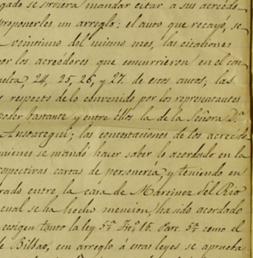 gado se sirviera mandar citar a sus acreedo-
proponerles un arreglo: el auto que recayó, se
veintiuno del mismo mes, las citaciones
por los acreedores que concurrieron en el con-
24, 25, 26, y 27 de estos autos, las
respecto de lo convenido por los representantes
poder bastante y entre ellos la de la Señora Dª
las contestaciones de los acreedo
quienes se mandó hacer saber lo acordado en la
respectivas cartas de personería, y teniendo en
rado entre la casa de Martinez del Rio
cual se ha hecho mencion, ha sido acordado
exigen tanto la ley 5ª Part. 5ª como el
de Bilbao, con arreglo á estas leyes se aprueba